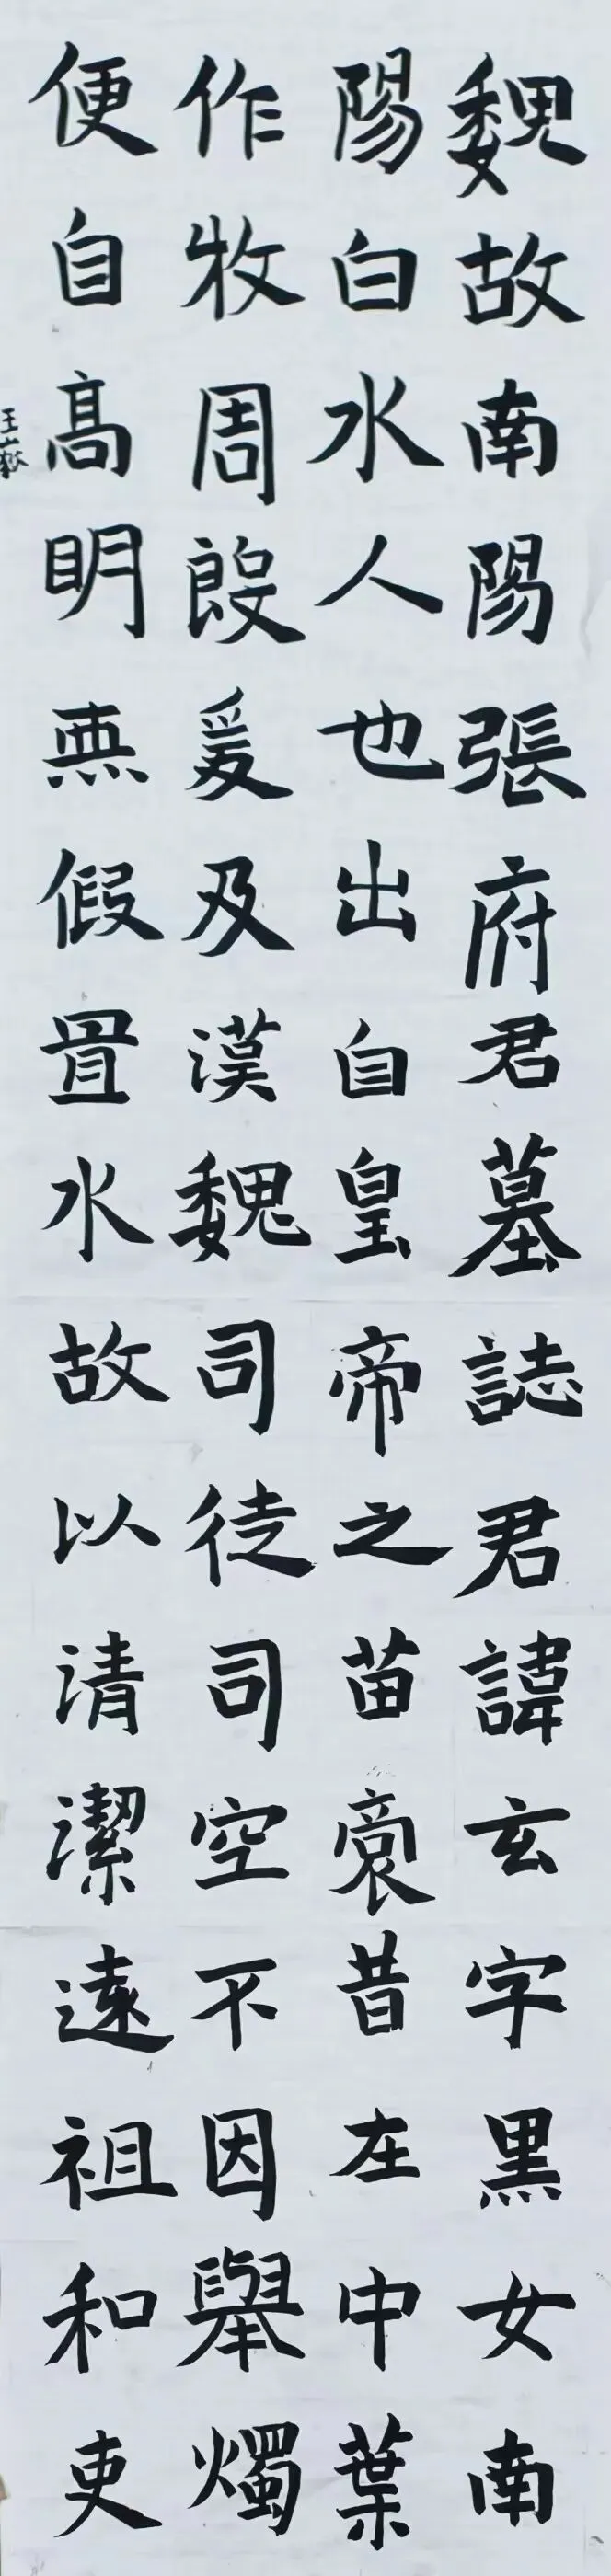 魏故南陽張府君墓誌君諱玄字黑女南
陽白水人也出自皇帝之苗裔昔在中葉
作牧周殷爰及漢魏司徒司空不因舉燭
便自高明無假置水故以清潔遠祖和吏
王嶽